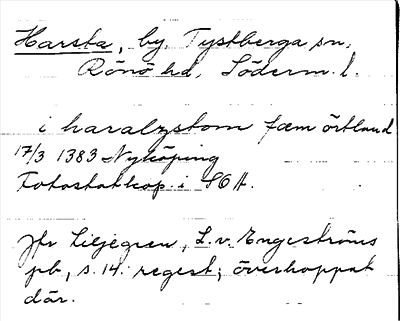 Harsta, by, Tystberga sn,
Rönö hd, Söderm. l.
i haralzstom fæm örtland
17/3 1383 Nyköping
Fotostatkop. i SOA.
Jfr Liljegren, L. v. Engeströms
pb, s. 14. regest; överhoppat
där.